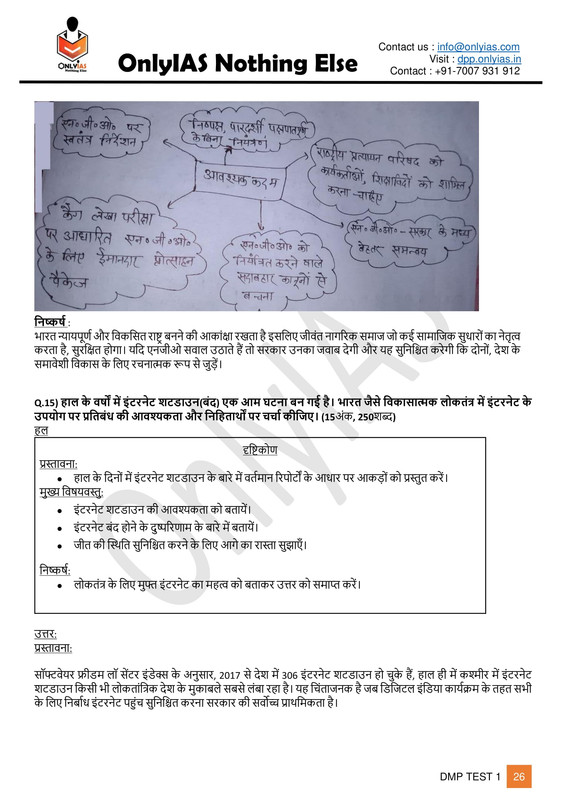 ONLYIAS
Nothing Else
OnlyIAS Nothing Else
Contact us : info@onlyias.com
Visit : dpp.onlyias.in
Contact : +91-7007 931 912
एन०जी०ओ० पर
स्वतंत्र निर्देशन
निष्पक्ष, पारदर्शी पक्षपातपूर्ण
के बिना नियंत्रण
राष्ट्रीय प्रत्यायन परिषद को
कार्यकर्ताओं, शिक्षाविदों को शामिल
करना चाहिए
आवश्यक कदम
कैग लेखा परीक्षा
पर आधारित एन०जी०ओ०
के लिए ईमानदार प्रोत्साहन
पैकेज
एन०जी०ओ० को
नियंत्रित करने वाले
सदाबहार कानूनों से
बचना
एन०जी०ओ०-सरकार के मध्य
बेहतर समन्वय
निष्कर्ष :
भारत न्यायपूर्ण और विकसित राष्ट्र बनने की आकांक्षा रखता है इसलिए जीवंत नागरिक समाज जो कई सामाजिक सुधारों का नेतृत्व
करता है, सुरक्षित होगा। यदि एनजीओ सवाल उठाते हैं तो सरकार उनका जवाब देगी और यह सुनिश्चित करेगी कि दोनों, देश के
समावेशी विकास के लिए रचनात्मक रूप से जुड़ें।
Q.15) हाल के वर्षों में इंटरनेट शटडाउन(बंद) एक आम घटना बन गई है। भारत जैसे विकासात्मक लोकतंत्र में इंटरनेट के
उपयोग पर प्रतिबंध की आवश्यकता और निहितार्थों पर चर्चा कीजिए। (15अंक, 250शब्द)
हल
दृष्टिकोण
प्रस्तावना:
• हाल के दिनों में इंटरनेट शटडाउन के बारे में वर्तमान रिपोर्टों के आधार पर आकड़ों को प्रस्तुत करें।
मुख्य विषयवस्तु:
• इंटरनेट शटडाउन की आवश्यकता को बतायें।
• इंटरनेट बंद होने के दुष्परिणाम के बारे में बतायें।
• जीत की स्थिति सुनिश्चित करने के लिए आगे का रास्ता सुझाएँ।
निष्कर्ष:
• लोकतंत्र के लिए मुफ्त इंटरनेट का महत्व को बताकर उत्तर को समाप्त करें।
उत्तर:
प्रस्तावना:
सॉफ्टवेयर फ्रीडम लॉ सेंटर इंडेक्स के अनुसार, 2017 से देश में 306 इंटरनेट शटडाउन हो चुके हैं, हाल ही में कश्मीर में इंटरनेट
शटडाउन किसी भी लोकतांत्रिक देश के मुकाबले सबसे लंबा रहा है। यह चिंताजनक है जब डिजिटल इंडिया कार्यक्रम के तहत सभी
के लिए निर्बाध इंटरनेट पहुंच सुनिश्चित करना सरकार की सर्वोच्च प्राथमिकता है।
OnlyIAS
DMP TEST 1 26